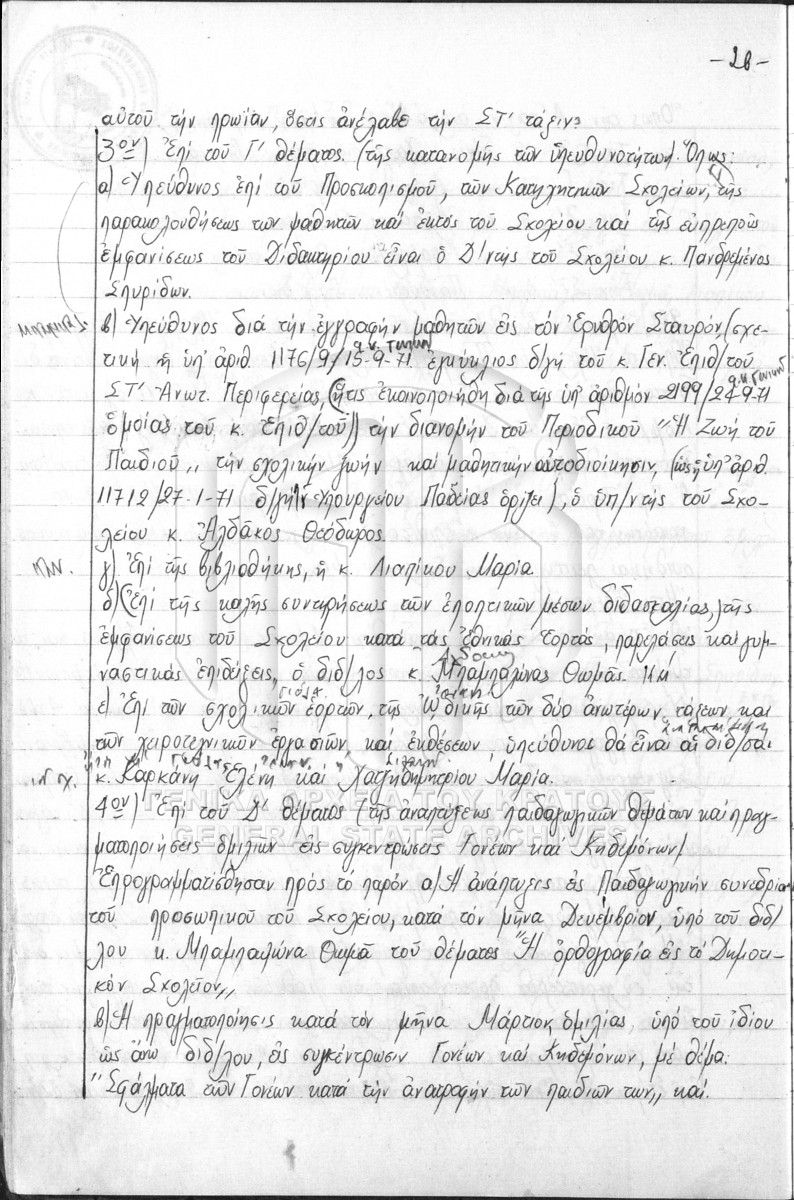 -26-
αὐτοῦ τὴν πρωΐαν, ὅστις ἀνέλαβε τὴν ΣΤ' τάξιν?
3ον) Ἐπὶ τοῦ Γ' θέματος. (τῆς κατανομῆς τῶν ὑπευθυνοτήτων). Ὅπως:
α) Ὑπεύθυνος ἐπὶ τοῦ Προσκοπισμοῦ, τῶν Κατηχητικῶν Σχολείων, τῆς
παρακολουθήσεως τῶν μαθητῶν καὶ ἐκτός τοῦ Σχολείου καὶ τῆς εὐπρεποῦς
ἐμφανίσεως τοῦ Διδακτηρίου εἶναι ὁ Δ/ντής τοῦ Σχολείου κ. Πανδρεμένος
Σπυρίδων.
β) Ὑπεύθυνος διά τὴν ἐγγραφήν μαθητῶν εἰς τόν Ἐρυθρόν Σταυρόν, (σχε-
τική ἡ ὑπ' ἀριθ. 1176/9/15-9-71 ἐγκύκλιος δ/γή τοῦ κ. Γεν. Ἐπιθ/τοῦ
ΣΤ' Ἀνωτ. Περιφερείας, (ἥτις ἐκοινοποιήθη διά τῆς ὑπ' ἀριθμόν 2199/27-9-71
ὁμοίας τοῦ κ. Ἐπιθ/τοῦ)) τὴν διανομήν τοῦ Περιοδικοῦ "Ἡ Ζωή τοῦ
Παιδιοῦ,, τὴν σχολικήν ζωήν καὶ μαθητικήν αὐτοδιοίκησιν, (ὡς ἡ ὑπ' ἀριθ.
11712/27-1-71 δ/γή Ὑπουργείου Παιδείας ὁρίζει), ὁ ὑπ/ντής τοῦ Σχο-
λείου κ. Ἀλδάκος Θεόδωρος.
γ) Ἐπί τῆς βιβλιοθήκης, ἡ κ. Λιαπίκου Μαρία
δ) (Ἐπί τῆς καλῆς συντηρήσεως τῶν ἐποπτικῶν μέσων διδασκαλίας,) τῆς
ἐμφανίσεως τοῦ Σχολείου κατά τάς ἐθνικάς ἑορτάς, παρελάσεις καί γυμ-
ναστικάς ἐπιδείξεις, ὁ διδ/λος κ. Μπαμπαλώνας Θωμᾶς.
ε) Ἐπί τῶν σχολικῶν ἑορτῶν, τῆς Ὠδικῆς τῶν δύο ἀνωτέρων τάξεων καί
τῶν χειροτεχνικῶν ἐργασιῶν, καί ἐκθέσεων ὑπεύθυνοι θά εἶναι αἱ διδ/σαι
κ. Καρκάνη Ἑλένη καί Χατζηδημητρίου Μαρία.
4ον) Ἐπί τοῦ Δ' θέματος (τῆς ἀναπτύξεως παιδαγωγικῶν θεμάτων καί πραγ-
ματοποιήσεις ὁμιλιῶν εἰς συγκεντρώσεις Γονέων καί Κηδεμόνων)
Ἐπρογραμματίσθησαν πρός τό παρόν α) Ἡ ἀνάπτυξις εἰς Παιδαγωγικήν συνεδρίαν
τοῦ προσωπικοῦ τοῦ Σχολείου, κατά τόν μῆνα Δεκέμβριον, ὑπό τοῦ διδ/
λου κ. Μπαμπαλώνα Θωμᾶ τοῦ θέματος "Ἡ ὀρθογραφία εἰς τό Δημοτι-
κόν Σχολεῖον,,
β) Ἡ πραγματοποίησις κατά τόν μῆνα Μάρτιον, ὁμιλίας, ὑπό τοῦ ἰδίου
ὡς ἄνω διδ/λου, εἰς συγκέντρωσιν Γονέων καί Κηδεμόνων, μέ θέμα:
"Σφάλματα τῶν Γονέων κατά τήν ἀνατροφήν τῶν παιδιῶν των,, καί.
ΓΕΝΙΚΑ ΑΡΧΕΙΑ ΤΟΥ ΚΡΑΤΟΥΣ
GENERAL STATE ARCHIVES